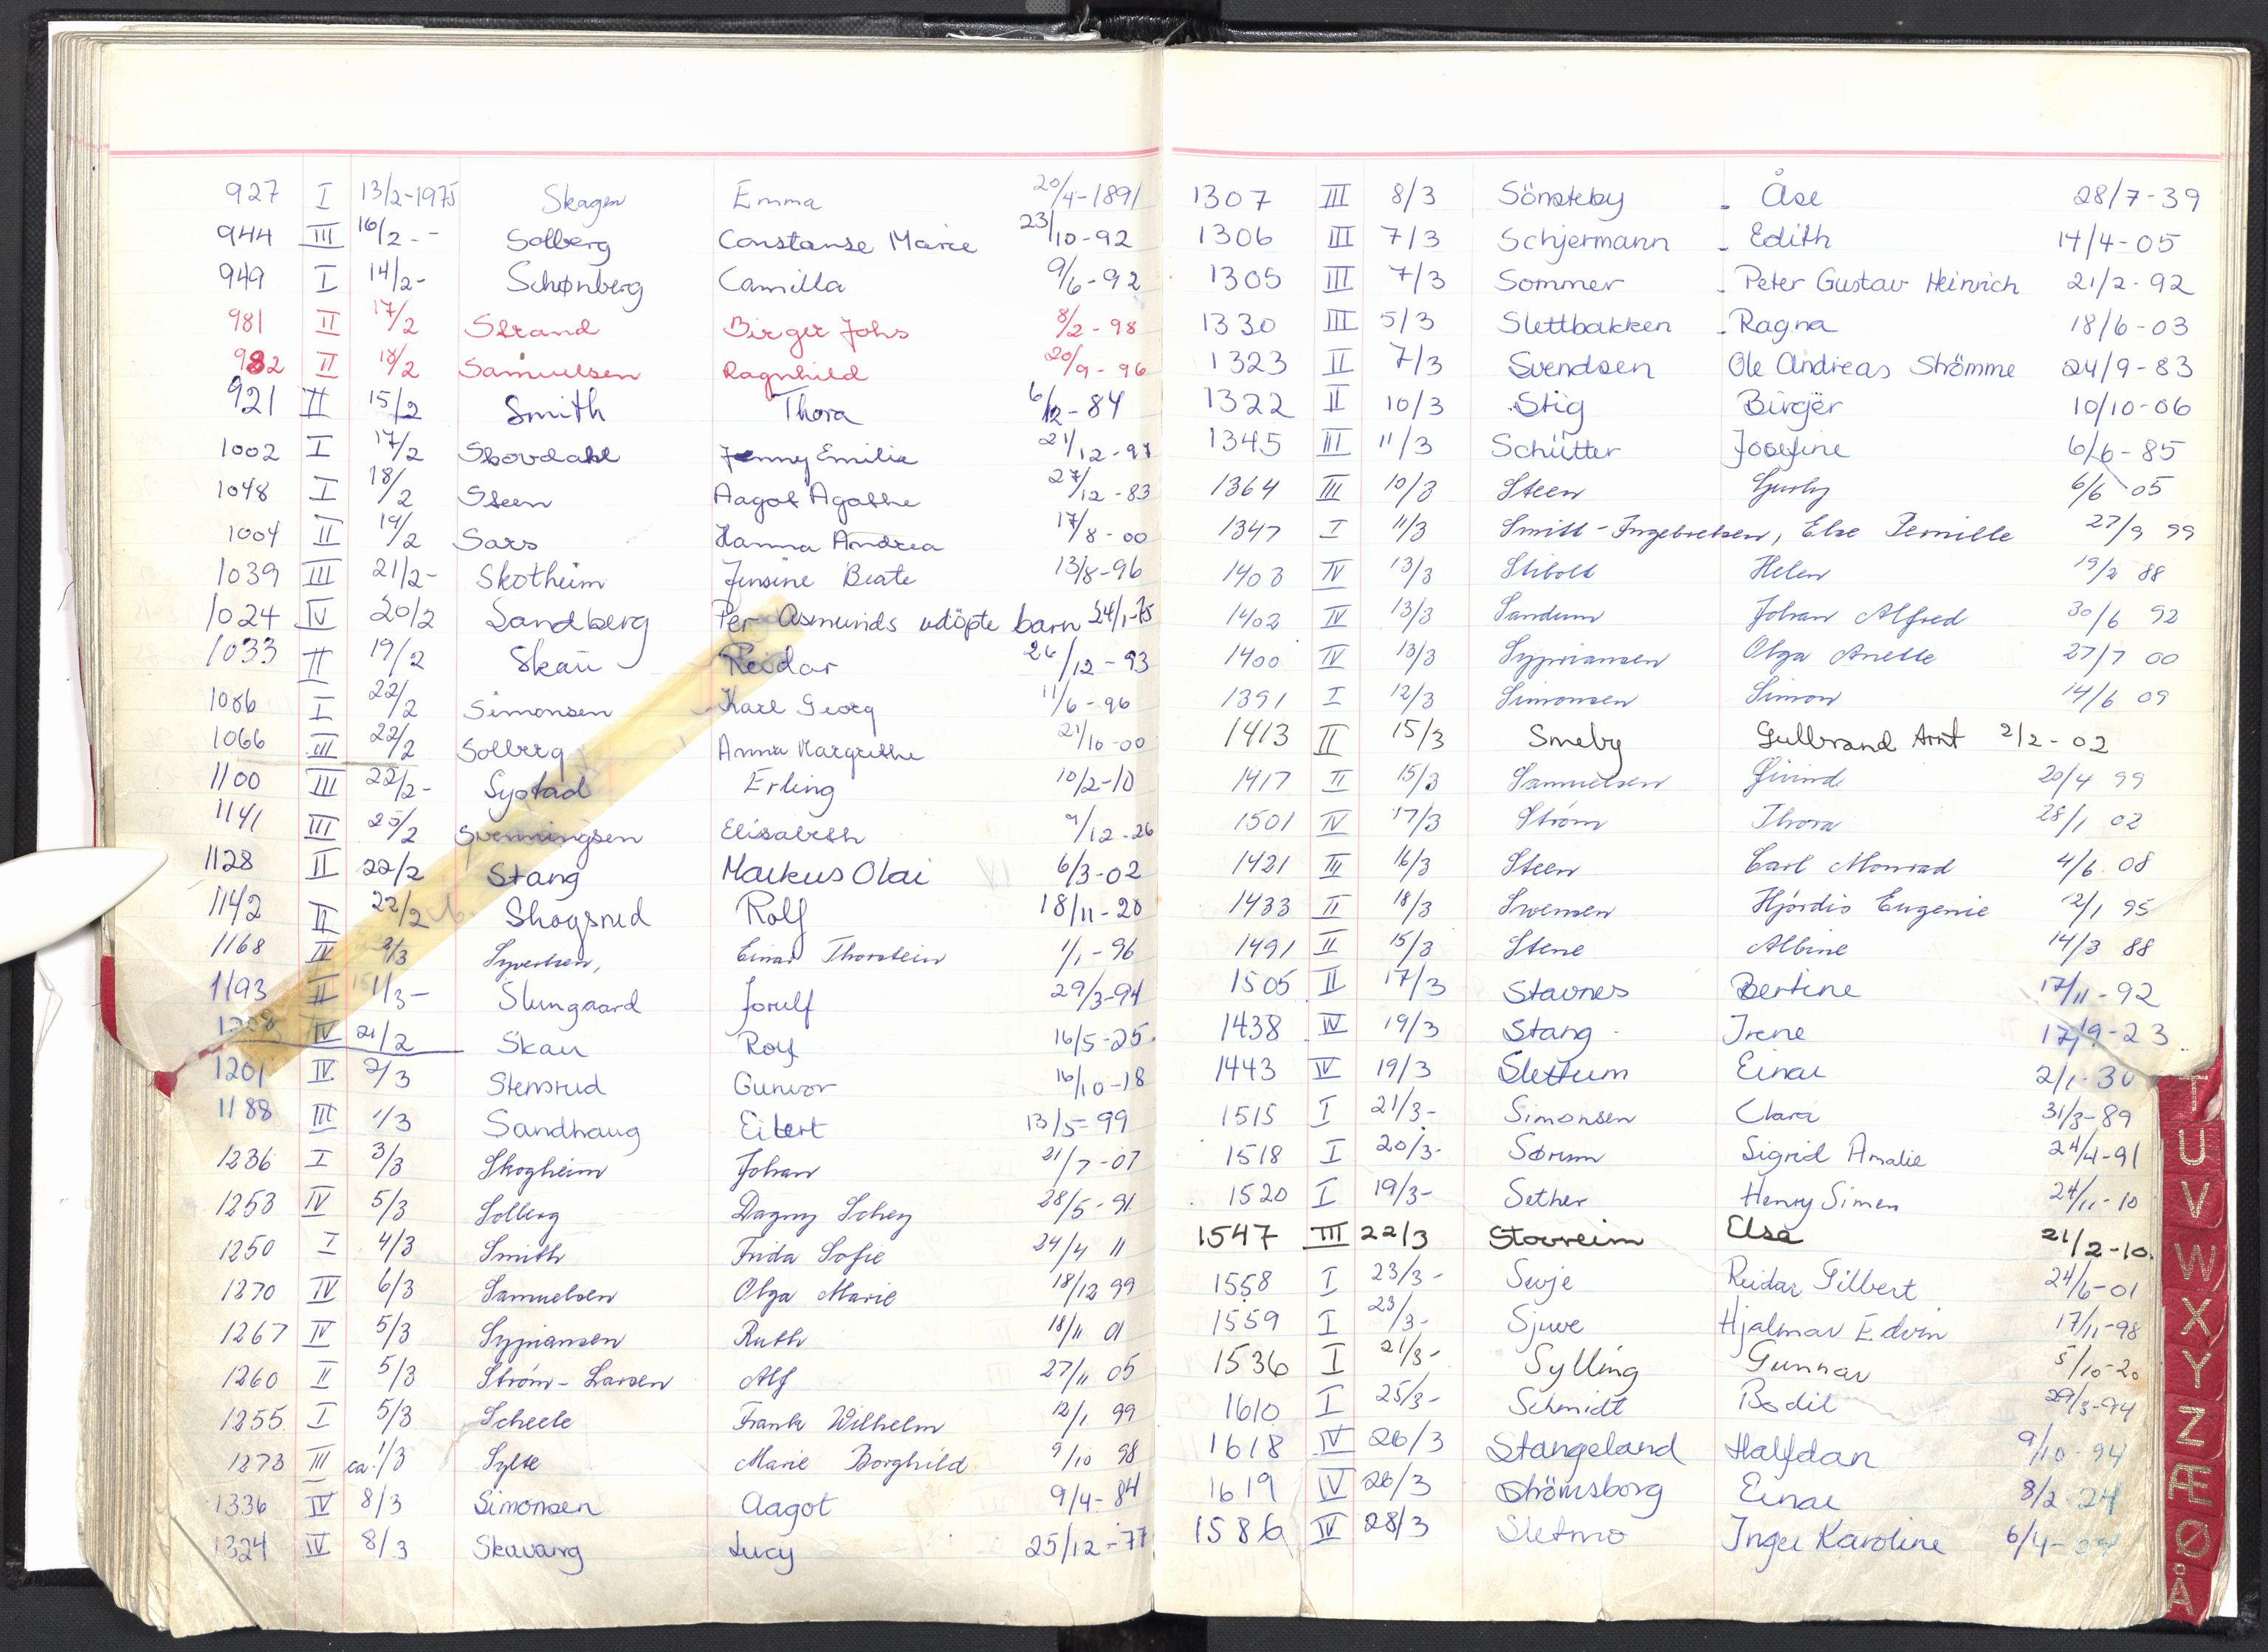 927 I 13/2-1975 Skagen Emma 20/4-1891
944 III 16/2 -- Solberg Constanse Marie 23/10-92
949 I 14/2- Schønberg Camilla 9/6-92
981 II 17/2 Strand Birger Johs 8/2-98
982 II 18/2 Samuelsen Ragnhild 20/9-96
921 II 15/2 Smith Thora 6/12-84
1002 I 17/2 Skovdahl Jenny Emilie 21/12-97
1048 I 18/2 Steen Aagot Agathe 27/12-83
1004 II 19/2 Sars Hanna Andrea 17/8-00
1039 III 21/2- Skotheim Jensine Beate 13/8-96
1024 IV 20/2 Sandberg Per Asmunds udöpte barn 24/1-75
1033 II 19/2 Skau Reidar 26/12-93
1086 I 22/2 Simonsen Karl Georg 11/6-96
1066 III 22/2 Solberg Anna Margrethe 21/10-00
1100 III 22/2- Systad Erling 10/2-10
1141 III 25/2 Svenningsen Elisabeth 9/12-26
1128 II 22/2 Stang Markus Olai 6/3-02
1142 II 22/2 Skogsrud Rolf 18/11-20
1168 IV 2/3 Syvertsen, Einar Thorstein 1/1-96
1193 II 1/3- Slungaard Jorulf 29/3-94
1208 IV 21/2 Skau Roy 16/5-25.
1201 IV 2/3 Stensrud Gunvor 16/10-18
1188 III 1/3 Sandhaug Eilert 13/5-99
1236 I 3/3 Skogheim Johan 21/7-07
1253 IV 5/3 Solberg Dagny Schey 28/5-91
1250 I 4/3 Smith Frida Sofie 24/4 11
1270 IV 6/3 Samuelsen Olga Marie 18/12 99
1267 IV 5/3 Sypriansen Ruth 18/11 01
1260 II 5/3 Strøm-Larsen Alf 27/11 05
1255 I 5/3 Scheele Frank Wilhelm 12/1 99
1273 III ca. 1/3 Sylte Marie Borghild 9/10 98
1336 IV 8/3 Simonsen Aagot 9/4-84
1324 IV 8/3 Skavang Lucy 25/12-77
1307 III 8/3 Sönsteby - Åse 28/7-39
1306 III 7/3 Schjermann - Edith 14/4-05
1305 III 7/3 Sommer - Peter Gustav Heinrich 21/2-92
1330 III 5/3 Slettbakken - Ragna 18/6-03
1323 II 7/3 Svendsen Ole Andreas Strömme 24/9-83
1322 II 10/3 Stig Birger 10/10-06
1345 III 11/3 Schütter Josefine 6/6-85
1364 III 10/3 Steen 6/6 05
1347 I 11/3 Smitt-Ingebretsen, Else Pernille 27/9 99
1403 IV 13/3 Stibolt Helen 19/2 88
1402 IV 13/3 Sandum Johan Alfred 30/6 92
1400 IV 13/3 Sypriansen Olga Anette 27/7 00
1391 I 12/3 Simonsen Simon 14/6 09
1413 II 15/3 Smeby Gulbrand Arnt 2/2-02
1417 II 15/3 Samuelsen Eivind 20/4 99
1501 IV 17/3 Strøm Thora 28/1 02
1421 III 16/3 Steen Carl Monrad 4/6 08
1433 II 18/3 Svensen Hjördis Eugenie 12/1 95
1491 II 15/3 Stene Albine 14/3 88
1505 II 17/3 Stavnes Bertine 17/11-92
1438 IV 19/3 Stang Irene 17/9-23
1443 IV 19/3 Slettum Einar 2/1-30
1515 I 21/3- Simonsen Clara 31/3-89
1518 I 20/3- Sørum Sigrid Amalie 24/4-91
1520 I 19/3- Sether Henry Simen 24/11-10
1547 III 22/3 Stavreim Elsa 21/2-10.
1558 I 23/3- Sevje Reidar Gilbert 24/6-01
1559 I 23/3- Sjuve Hjalmar Edvin 17/11-98
1536 I 21/3- Sylling Gunnar 5/10-20
1610 I 25/3- Schmidt Bodil 29/3-94
1618 IV 26/3 Stangeland Halfdan 9/10-94
1619 IV 26/3 Strömsborg Einar 8/2 24
1586 IV 28/3 Sletmo Inger Karoline 6/4-
T
U
V
W
X
Y
Z
Æ
Ø
Å